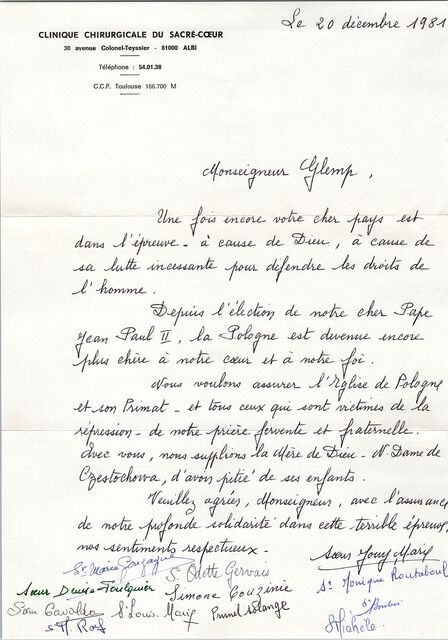 CLINIQUE CHIRURGICALE DU SACRÉ-CŒUR
30 avenue Colonel-Teyssier - 81000 ALBI
Téléphone : 54.01.38
C.C.P. Toulouse 166.700 M
Le 20 décembre 1981
Monseigneur Glemp,
Une fois encore votre cher pays est
dans l'épreuve - à cause de Dieu, à cause de
sa lutte incessante pour défendre les droits de
l'homme.
Depuis l'élection de notre cher Pape
Jean Paul II, la Pologne est devenue encore
plus chère à notre cœur et à notre foi.
Nous voulons assurer l'Eglise de Pologne
et son Primat - et tous ceux qui sont victimes de la
répression - de notre prière fervente et fraternelle.
Avec vous, nous supplions la Mère de Dieu - N. Dame de
Czestochowa, d'avoir pitié de ses enfants.
Veuillez agréer, Monseigneur, avec l'assurance
de notre profonde solidarité dans cette terrible épreuve,
nos sentiments respectueux -
Sœur Marie
Sr Marie Gonzague
Sr Odette Gervais
Sr Monique Routaboul
Sœur Denise Foulquier
Simone Couzinie
Sœur Cavallo
Sr Louis Marie
Prunel Solange